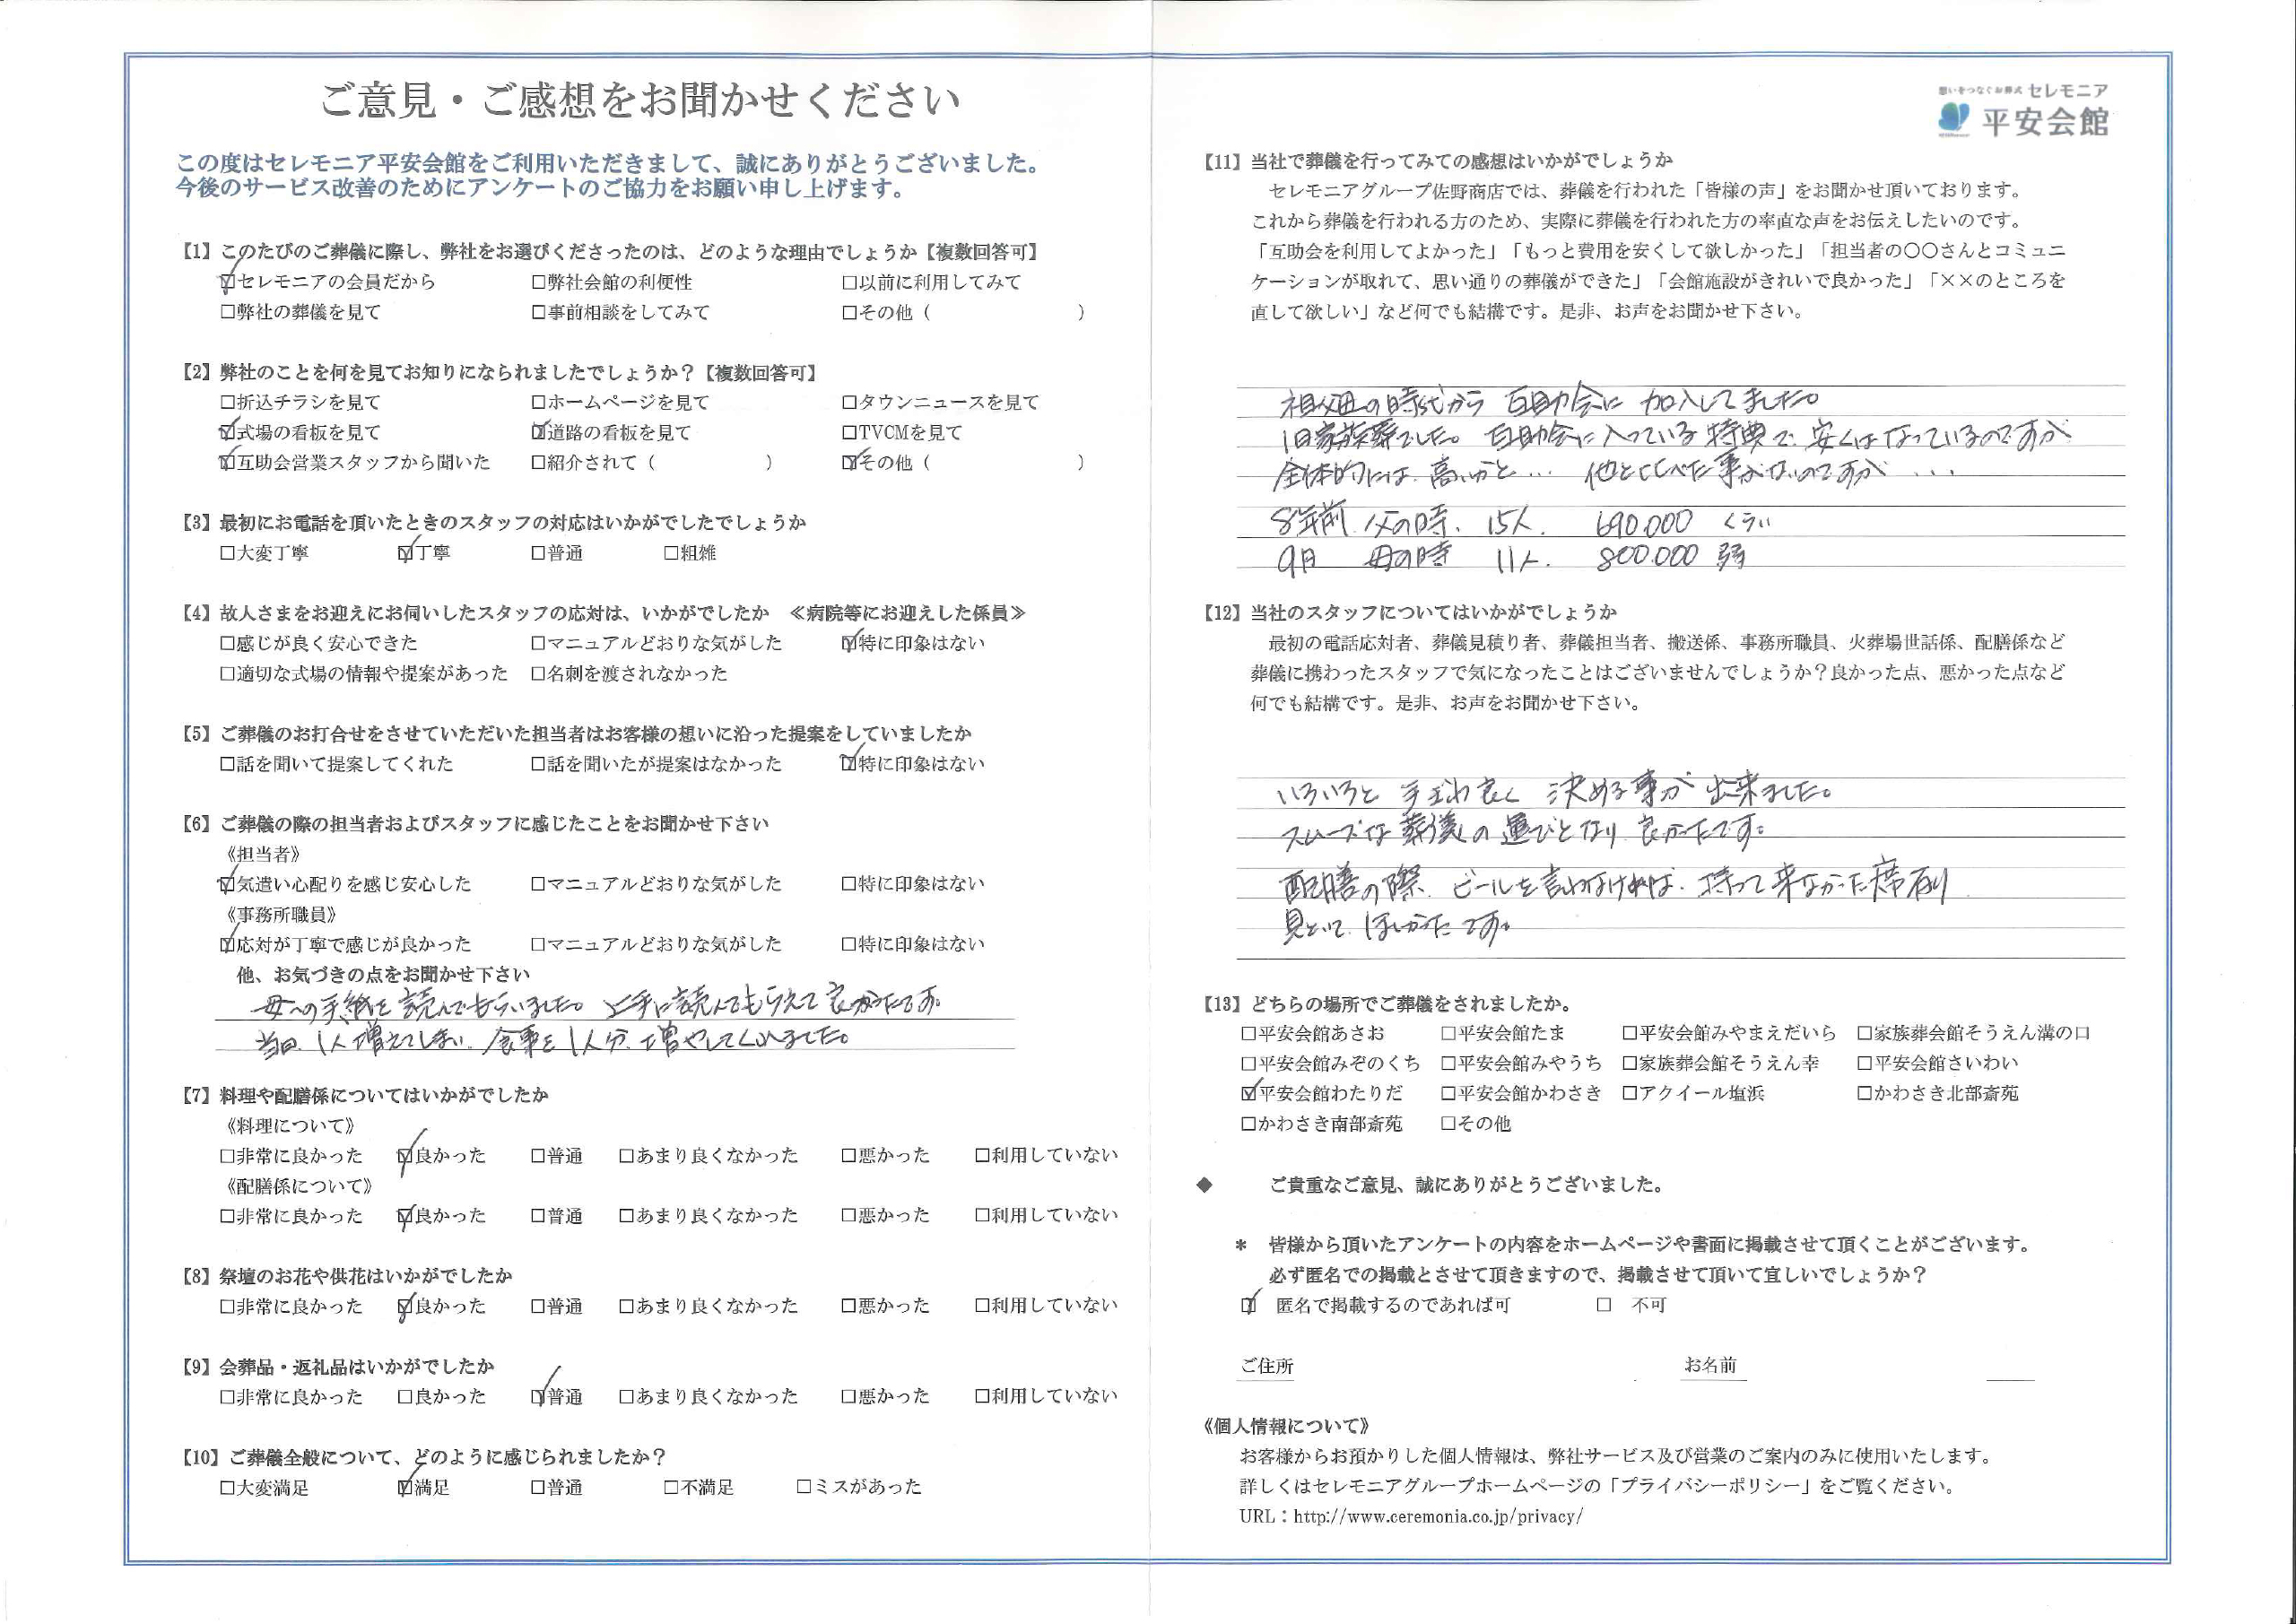 ご意見・ご感想をお聞かせください
この度はセレモニア平安会館をご利用いただきまして、誠にありがとうございました。
今後のサービス改善のためにアンケートのご協力をお願い申し上げます。
【1】このたびのご葬儀に際し、弊社をお選びくださったのは、どのような理由でしょうか【複数回答可】
☑セレモニアの会員だから □弊社会館の利便性 □以前に利用してみて
□弊社の葬儀を見て □事前相談をしてみて □その他（ ）
【2】弊社のことを何を見てお知りになられましたでしょうか？【複数回答可】
□折込チラシを見て □ホームページを見て □タウンニュースを見て
☑式場の看板を見て ☑道路の看板を見て □TVCMを見て
☑互助会営業スタッフから聞いた □紹介されて（ ） ☑その他（ ）
【3】最初にお電話を頂いたときのスタッフの対応はいかがでしたでしょうか
□大変丁寧 ☑丁寧 □普通 □粗雑
【4】故人さまをお迎えにお伺いしたスタッフの応対は、いかがでしたか ≪病院等にお迎えした係員≫
□感じが良く安心できた □マニュアルどおりな気がした ☑特に印象はない
□適切な式場の情報や提案があった □名刺を渡されなかった
【5】ご葬儀のお打合せをさせていただいた担当者はお客様の想いに沿った提案をしていましたか
□話を聞いて提案してくれた □話を聞いたが提案はなかった ☑特に印象はない
【6】ご葬儀の際の担当者およびスタッフに感じたことをお聞かせ下さい
《担当者》
☑気遣い心配りを感じ安心した □マニュアルどおりな気がした □特に印象はない
《事務所職員》
☑応対が丁寧で感じが良かった □マニュアルどおりな気がした □特に印象はない
他、お気づきの点をお聞かせ下さい
母への手紙を読んでもらいました。上手に読んでもらえて良かったです。
当日、1人増えてしまい、食事を1人分、増やしてくれました。
【7】料理や配膳係についてはいかがでしたか
《料理について》
□非常に良かった ☑良かった □普通 □あまり良くなかった □悪かった □利用していない
《配膳係について》
□非常に良かった ☑良かった □普通 □あまり良くなかった □悪かった □利用していない
【8】祭壇のお花や供花はいかがでしたか
□非常に良かった ☑良かった □普通 □あまり良くなかった □悪かった □利用していない
【9】会葬品・返礼品はいかがでしたか
□非常に良かった □良かった ☑普通 □あまり良くなかった □悪かった □利用していない
【10】ご葬儀全般について、どのように感じられましたか？
□大変満足 ☑満足 □普通 □不満足 □ミスがあった
想いをつなぐお葬式 セレモニア
平安会館
【11】当社で葬儀を行ってみての感想はいかがでしょうか
セレモニアグループ佐野商店では、葬儀を行われた「皆様の声」をお聞かせ頂いております。
これから葬儀を行われる方のため、実際に葬儀を行われた方の率直な声をお伝えしたいのです。
「互助会を利用してよかった」「もっと費用を安くして欲しかった」「担当者の〇〇さんとコミュニ
ケーションが取れて、思い通りの葬儀ができた」「会館施設がきれいで良かった」「××のところを
直して欲しい」など何でも結構です。是非、お声をお聞かせ下さい。
祖父母の時代から 互助会に 加入してました。
1日家族葬でした。互助会に入っている特典で、安くはなっているのですが
全体的には、高いかと… 他とくらべた事がないのですが、…
8年前、父の時、15人. 690.000 くらい
9月 母の時 11人. 800.000 弱
【12】当社のスタッフについてはいかがでしょうか
最初の電話応対者、葬儀見積り者、葬儀担当者、搬送係、事務所職員、火葬場世話係、配膳係など
葬儀に携わったスタッフで気になったことはございませんでしょうか？良かった点、悪かった点など
何でも結構です。是非、お声をお聞かせ下さい。
いろいろと 手ぎわ良く 決める事が 出来ました。
スムーズな葬儀の運びとなり、良かったです。
配膳の際、ビールを言わなければ、持って来なかった席有り
見といて、ほしかったです。
【13】どちらの場所でご葬儀をされましたか。
□平安会館あさお □平安会館たま □平安会館みやまえだいら □家族葬会館そうえん溝の口
□平安会館みぞのくち □平安会館みやうち □家族葬会館そうえん幸 □平安会館さいわい
☑平安会館わたりだ □平安会館かわさき □アクイール塩浜 □かわさき北部斎苑
□かわさき南部斎苑 □その他
◆ ご貴重なご意見、誠にありがとうございました。
＊ 皆様から頂いたアンケートの内容をホームページや書面に掲載させて頂くことがございます。
必ず匿名での掲載とさせて頂きますので、掲載させて頂いて宜しいでしょうか？
☑ 匿名で掲載するのであれば可 □ 不可
ご住所 お名前
《個人情報について》
お客様からお預かりした個人情報は、弊社サービス及び営業のご案内のみに使用いたします。
詳しくはセレモニアグループホームページの「プライバシーポリシー」をご覧ください。
URL：http://www.ceremonia.co.jp/privacy/